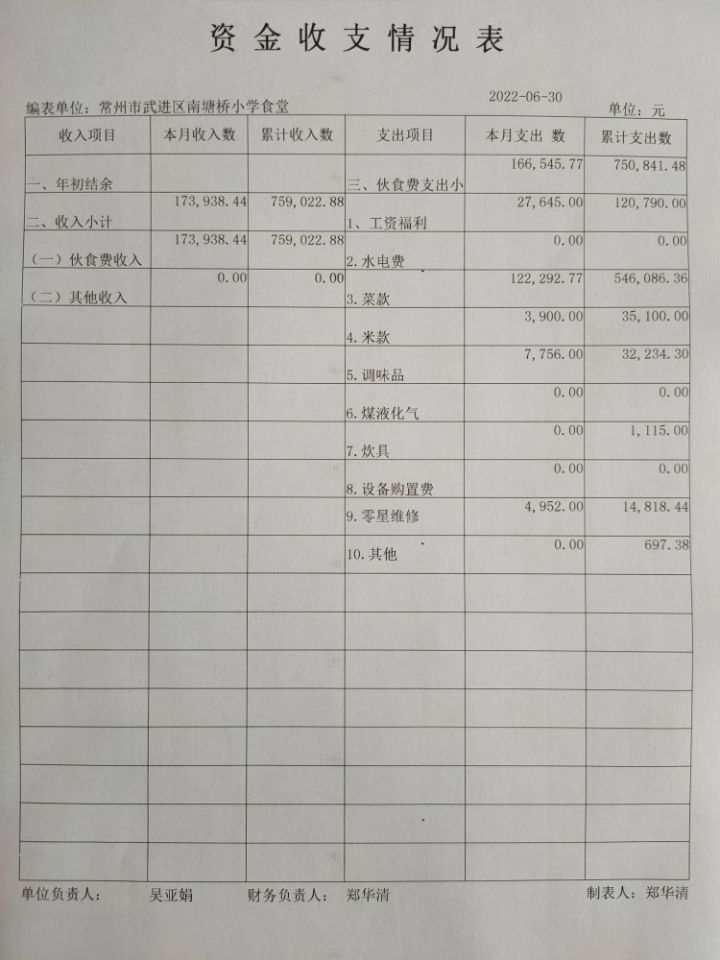 资金收支情况表
2022-06-30
编表单位：常州市武进区南塘桥小学食堂 单位：元
收入项目 本月收入数 累计收入数 支出项目 本月支出 数 累计支出数
一、年初结余 三、伙食费支出小 166,545.77 750,841.48
二、收入小计 173,938.44 759,022.88 1、工资福利 27,645.00 120,790.00
（一）伙食费收入 173,938.44 759,022.88 2.水电费 0.00 0.00
（二）其他收入 0.00 0.00 3.菜款 122,292.77 546,086.36
4.米款 3,900.00 35,100.00
5.调味品 7,756.00 32,234.30
6.煤液化气 0.00 0.00
7.炊具 0.00 1,115.00
8.设备购置费 0.00 0.00
9.零星维修 4,952.00 14,818.44
10.其他 0.00 697.38
单位负责人： 吴亚娟 财务负责人： 郑华清 制表人：郑华清